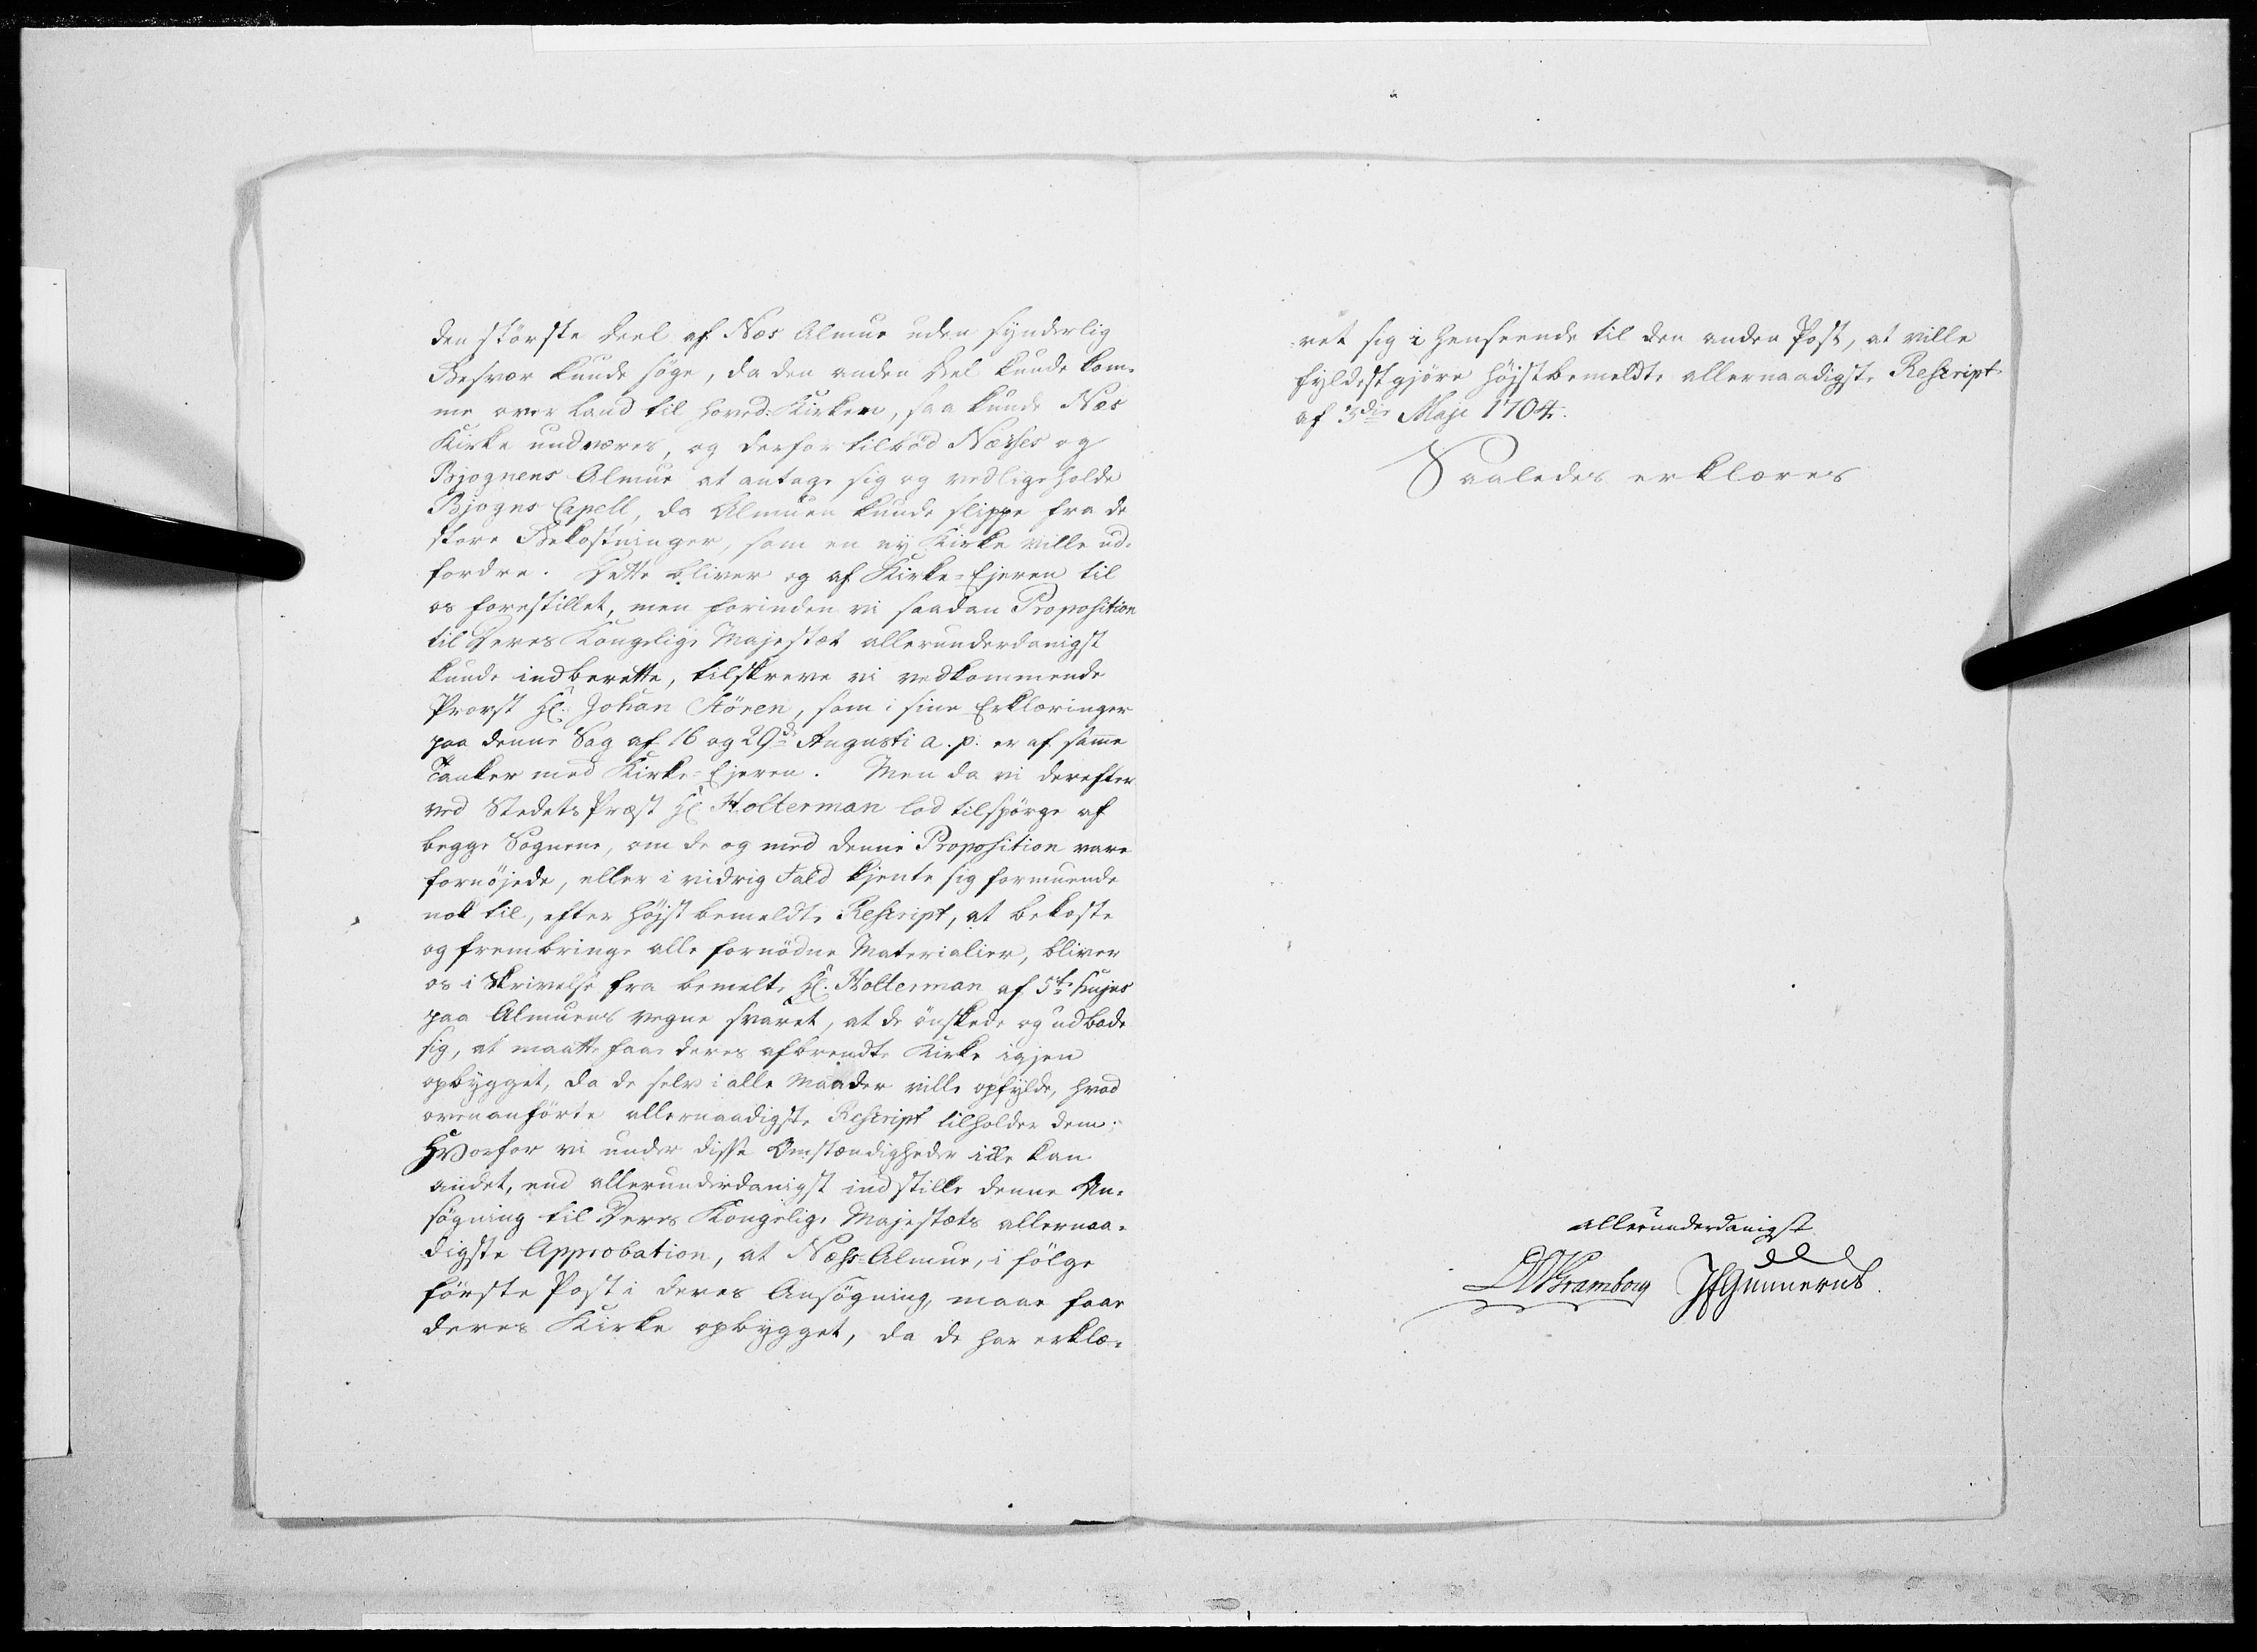 den störste Deel af Næs Almue uden synderlig
Besvær kunde söge, da den anden Deel kunde kom-
me over Land til Hoved-Kirken, saa kunde Næs
Kirke undværes, og derfor tilböd Næsses og
Bjognens Almue at antage sig og vedligeholde
Bjogns Capell, da Almuen kunde slippe fra de
store Bekostninger, som en ny Kirke ville ud-
fordre. Dette bliver og af Kirke-Ejeren til
os forestillet, men forinden vi saadan Proposition
til Deres Kongelige Majestæt allerunderdanigst
kunde indberette, tilskreve vi vedkommende
Provst Hr. Johan Stören, som i sine Erklæringer
paa denne Sag af 16 og 29de Augusti a. p. er af samme
Tanker med Kirke-Ejeren. Men da vi derefter
ved Stedets Præst Hr Holterman lod tilspörge af
begge Sognene, om de og med denne Proposition vare
fornöjede, eller i vidrig Fald kjente sig formuende
nok til, efter höjstbemeldte Rescript, at bekoste
og frembringe alle fornödne Materialier, bliver
os i Skrivelse fra bemelte Hr. Holterman af 5te hujus
paa Almuens Vegne svaret, at de önskede og udbade
sig, at maatte faae deres afbrendte Kirke igjen
opbygget, da de selv i alle Maader ville opfylde, hvad
ovenanförte allernaadigste Rescript tilholder dem;
Hvorfor vi under disse Omstændigheder ikke kan
andet, end allerunderdanigst indstille denne An-
sögning til Deres Kongelige Majestæts allernaa-
digste Approbation, at Næss-Almue, i fölge
förste Post i deres Ansögning, maae faae
deres Kirke opbygget, da de har erklæ-
ret sig i Henseende til den anden Post, at ville
fyldestgjöre höjstbemeldte allernaadigste Rescript
af 3die Maji 1704.
Saaledes erklæres
allerunderdanigst
JfGunnerus.